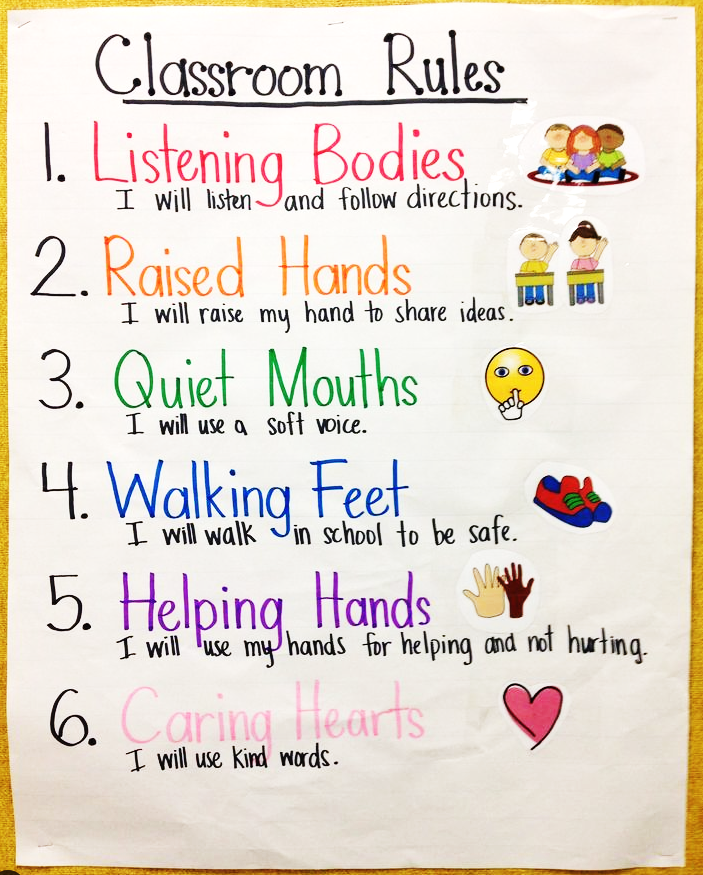 Classroom Rules
1. Listening Bodies
I will listen and follow directions.
2. Raised Hands
I will raise my hand to share ideas.
3. Quiet Mouths
I will use a soft voice.
4. Walking Feet
I will walk in school to be safe.
5. Helping Hands
I will use my hands for helping and not hurting.
6. Caring Hearts
I will use kind words.